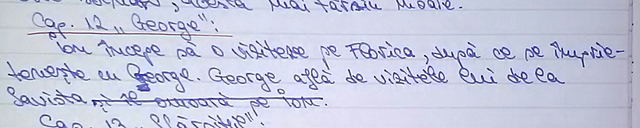 acesta mai târziu moare.
Cap. 12 „George":
Ion începe să o viziteze pe Florica, după ce se împrie-
tenește cu George. George află de vizitele lui de la
Savista și se omoară pe Ion.
Cap. 13 „Sfârșitul":